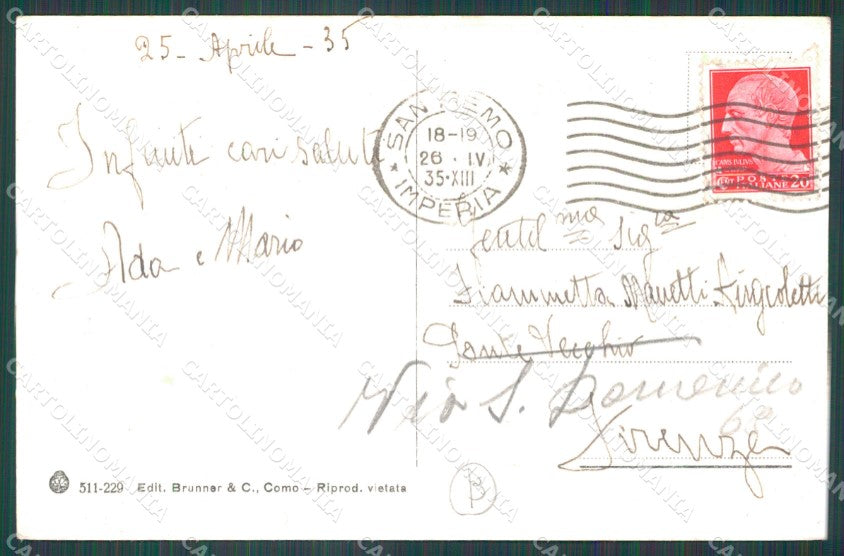 25 - Aprile - 35
Infiniti cari saluti
Ada e Mario
SAN REMO
18-19
26 · IV
35·XIII
IMPERIA
POSTE ITALIANE 20
Gentil.ma Sig.ra
Fiammetta Manetti
Ponte Vecchio
Via S. Domenico
Firenze
511-229 Edit. Brunner & C., Como – Riprod. vietata
CARTOLINOMANIA